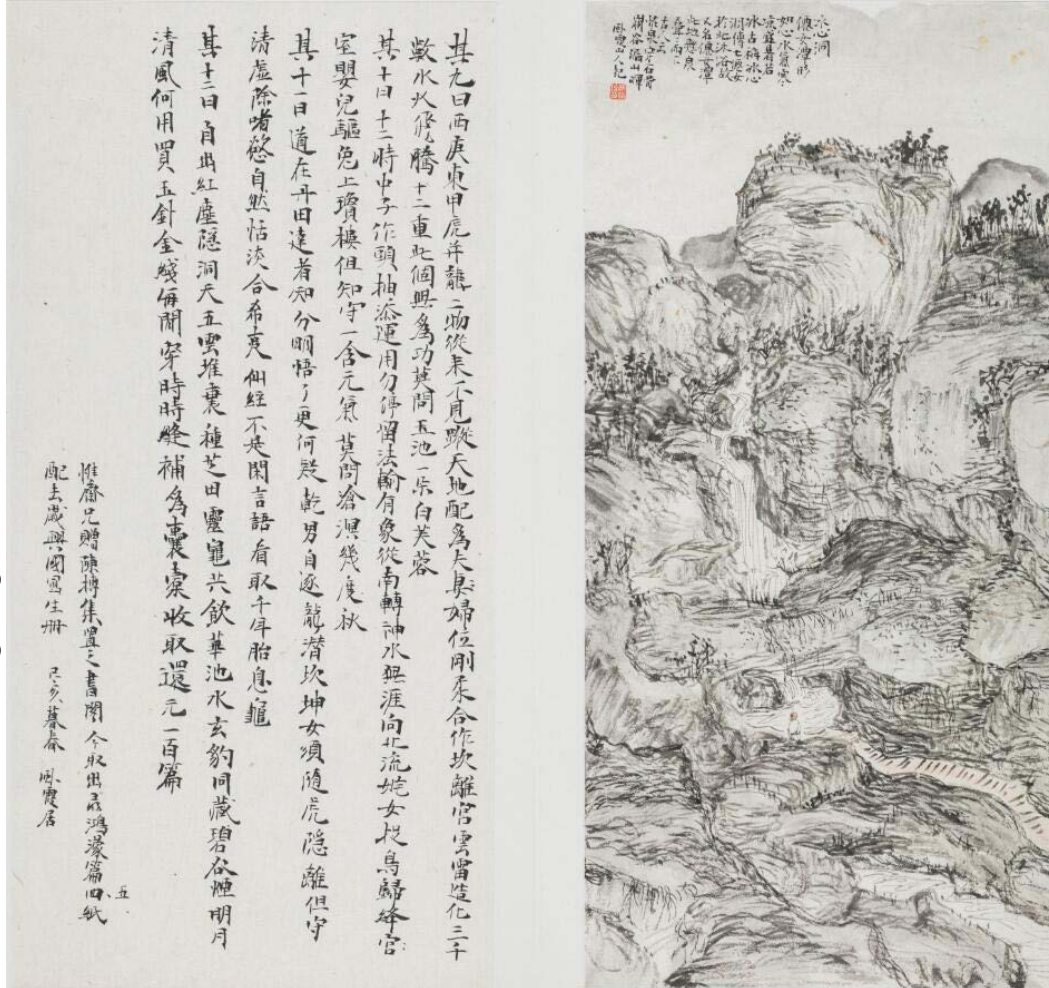 冰心洞
僊女潭形
如心水氣寒
凍盛暑若
冰古稱冰心
洞傳七僊女
於此沐浴故
又名僊女潭
古人云
風霞山人記
其九曰西庚東甲虎并龍二物從来不見蹤天地配為夫妻婦位剛柔合作坎離宮雲雷造化三千
數水火飛騰十二重此個興為功莫問玉池一朵白芙蓉
其十曰十二時中子作頭抽添運用勿停留法輪有象從南轉神水無涯向北流姹女捉烏歸絳宮
室嬰兒驅兔上瓊樓但知守一含元氣莫問滄溟幾度秋
其十一曰道在丹田達者知分明悟了更何疑乾男自逐龍潜坎坤女須隨虎隱離但守
清虛除嗜慾自然恬淡合希夷仙經不是閑言語看取千年胎息龜
其十二曰自出紅塵隱洞天五雲堆裏種芝田靈龜共飲華池水玄豹同藏碧谷煙明月
清風何用買玉針金綫每閑穿時時縫補為囊橐收取還元一百篇
五
惟齋兄贈陳摶集置之書閣今取出录鴻濛篇四紙
配去歲興國寫生册 己亥暮春 風霞居